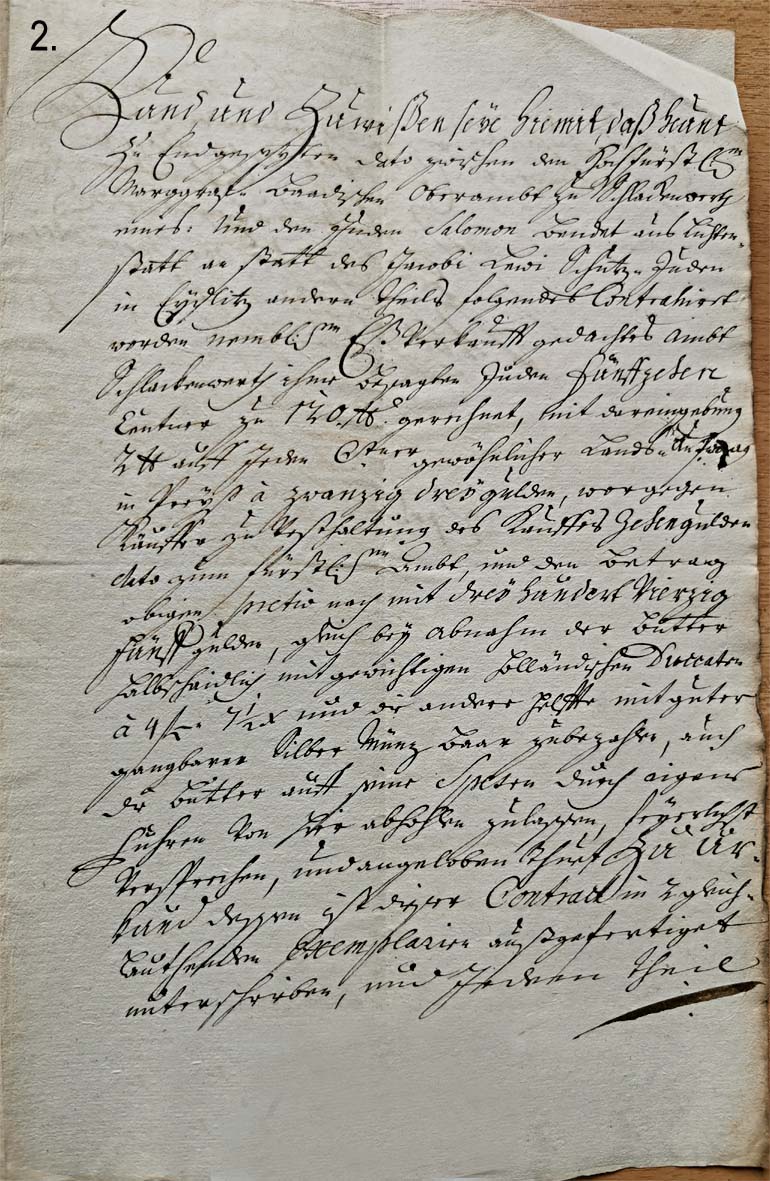 2.
Kund und Zuwißen seye hiemit, daß heunt
zu Endgesezten dato zwischen dem Hochfürstl.en
Marggraf. Baadischen Oberambt zu Schlackenwerth
eines: Und den Juden Salomon Bendet aus Lichten-
statt an statt des Jacobi Lewi Schutz-Juden
in Eydlitz andern theils folgendes Contrahiret
worden nemblichen Eß Verkaufft gedachtes Ambt
Schlackenwerth ihme besagten Juden Fünffzehen
Centner zu 120 ℔ gerechnet, mit dareingebung
2 ℔ auff Jeden Ctner gewöhnlicher Lands-
in Preyß à zwanzig drey gulden, worgegen
Käuffer zu Vesthaltung des Kauffes Zehen gulden
dato zum Fürstlichen Ambt, und den Betrag
obigen pretio nach mit drey hundert Vierzig
Fünff gulden, gleich bey Abnahm der Butter
halbscheidlich mit gewichtigen holländischen Duccaten
à 4 f. 7½ x und die andere helffte mit guter
gangbarer Silber Münz baar zubezahlen, auch
die Butter auff seine Spesen durch eigene
Fuhren von hier abhohlen zulassen, feyerlichst
Versprechen, und angeloben thuet Zu Ur-
kund dessen ist dieser Contract in 2 gleich-
lauthenden Exemplarien außgefertiget
unterschrieben, und Jedem theil